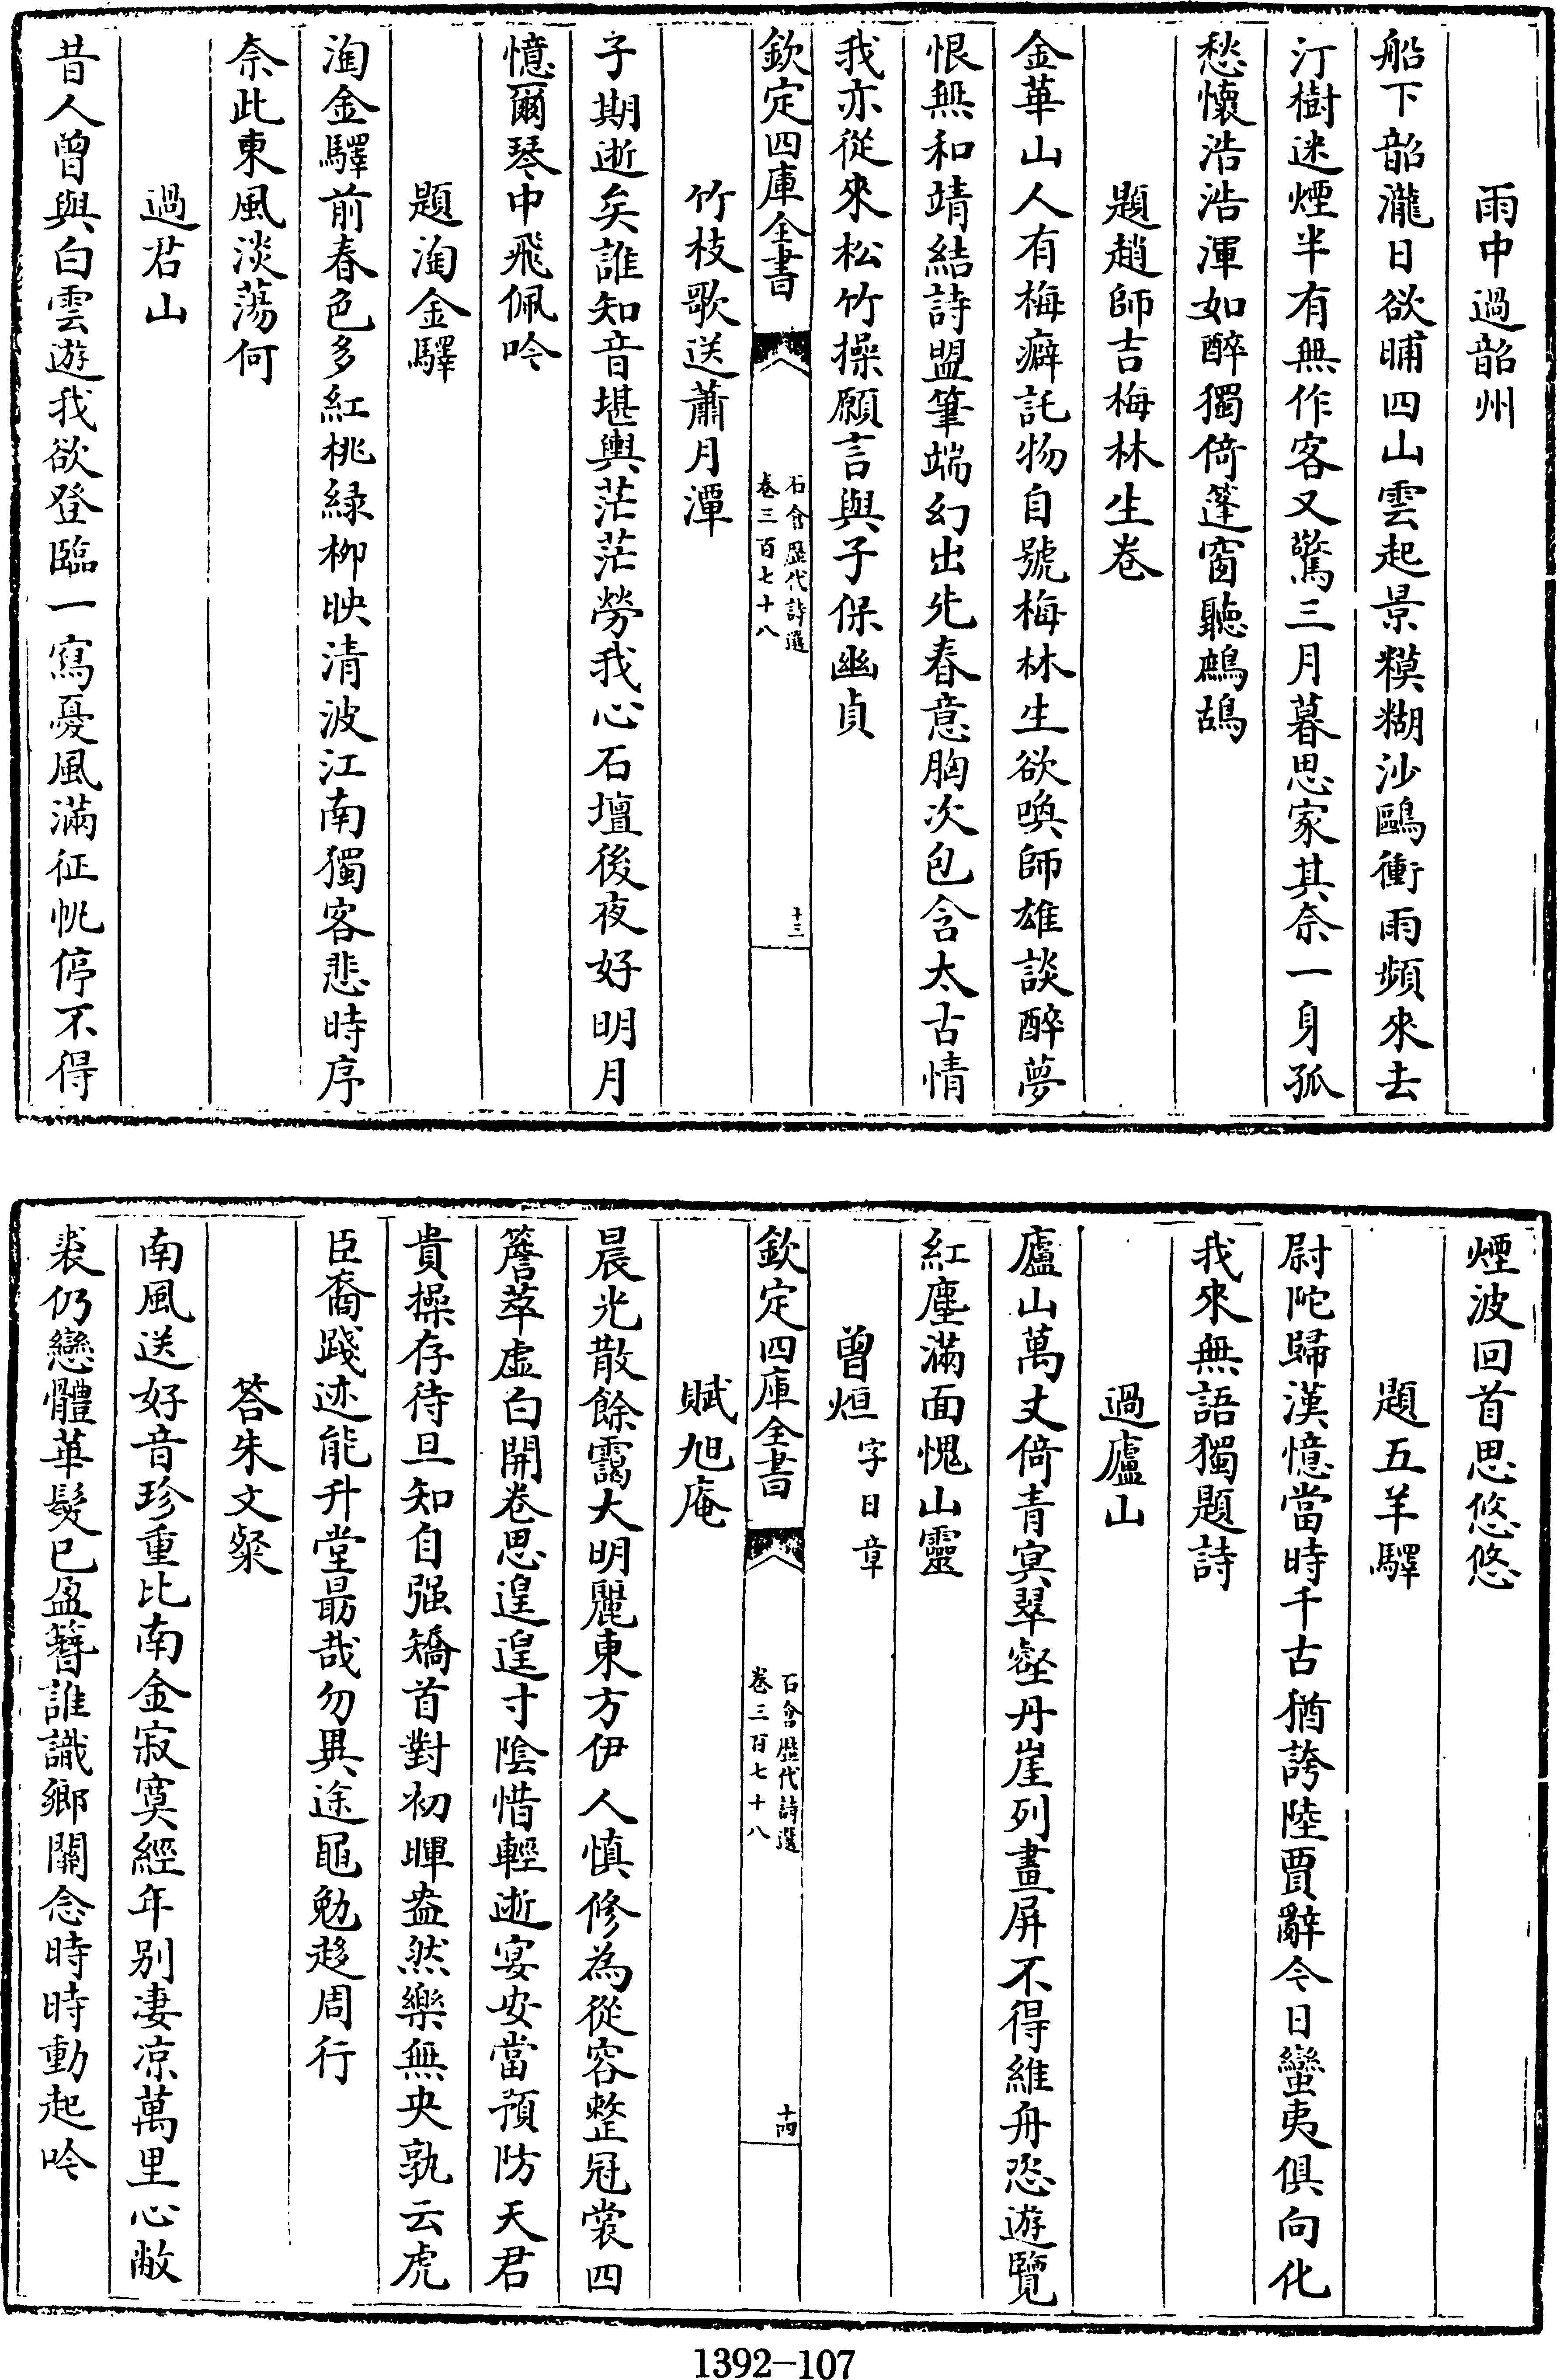 雨中過韶州
船下韶瀧日欲晡四山雲起景糢糊沙鷗衝雨頻來去
汀樹迷煙半有無作客又驚三月暮思家其奈一身孤
愁懷浩浩渾如醉獨倚篷窗聽鷓鴣
題趙師吉梅林生卷
金華山人有梅癖託物自號梅林生欲喚師雄談醉夢
恨無和靖結詩盟筆端幻出先春意胸次包含太古情
我亦從來松竹操願言與子保幽貞
欽定四庫全書
石倉歷代詩選
卷三百七十八
十三
竹枝歌送蕭月潭
子期逝矣誰知音堪輿茫茫勞我心石壇後夜好明月
憶爾琴中飛佩吟
題淘金驛
淘金驛前春色多紅桃綠柳映清波江南獨客悲時序
奈此東風淡蕩何
過君山
昔人曾與白雲遊我欲登臨一寫憂風滿征帆停不得
煙波回首思悠悠
題五羊驛
尉陀歸漢憶當時千古猶誇陸賈辭今日蠻夷俱向化
我來無語獨題詩
過廬山
廬山萬丈倚青冥翠壑丹崖列畫屏不得維舟恣遊覽
紅塵滿面愧山靈
曾烜字日章
欽定四庫全書
石倉歷代詩選
卷三百七十八
十四
賦旭庵
晨光散餘靄大明麗東方伊人慎修為從容整冠裳四
簷萃虛白開卷思遑遑寸陰惜輕逝宴安當預防天君
貴操存待旦知自强矯首對初暉盎然樂無央孰云虎
臣裔踐迹能升堂勗哉勿異途黽勉趍周行
答朱文粲
南風送好音珍重比南金寂寞經年别凄凉萬里心敝
裘仍戀體華髮已盈簪誰識鄉關念時時動起吟
1392-107